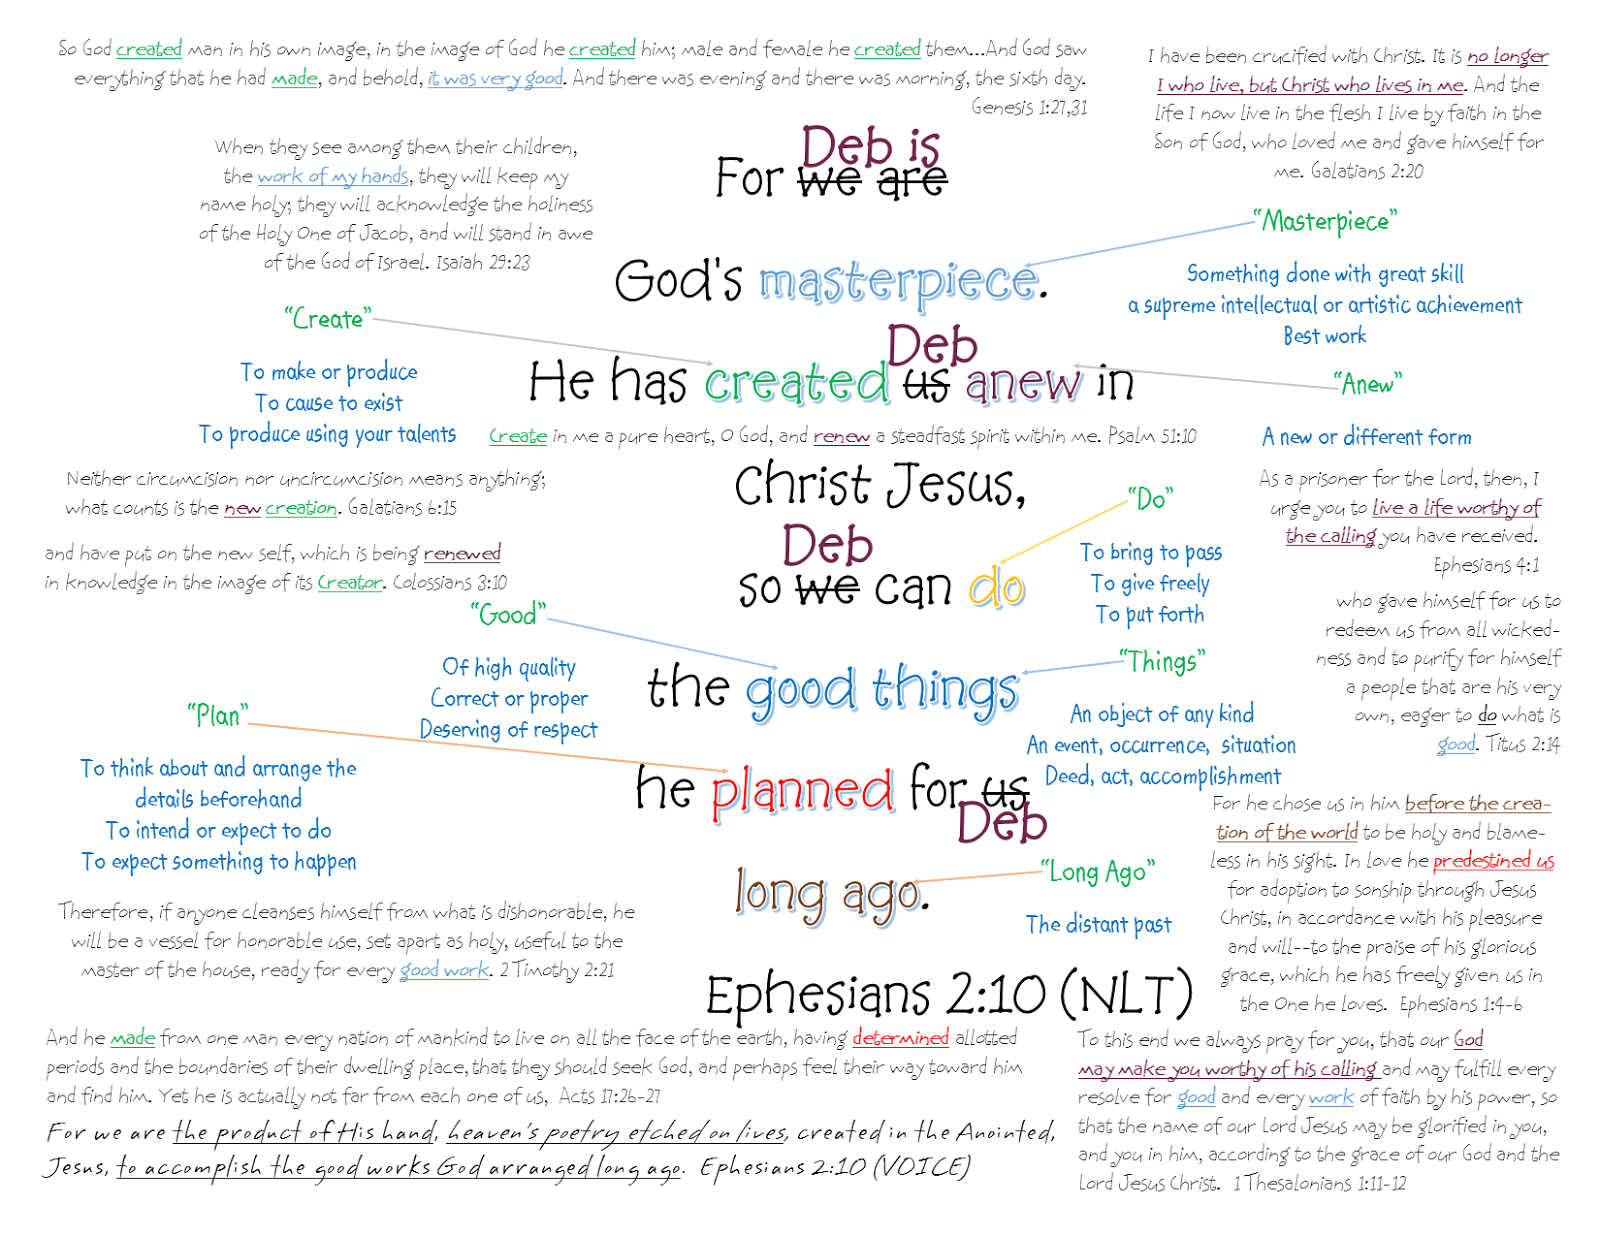 So God created man in his own image, in the image of God he created him; male and female he created them...And God saw
everything that he had made, and behold, it was very good. And there was evening and there was morning, the sixth day.
Genesis 1:27,31
I have been crucified with Christ. It is no longer
I who live, but Christ who lives in me. And the
life I now live in the flesh I live by faith in the
Son of God, who loved me and gave himself for
me. Galatians 2:20
When they see among them their children,
the work of my hands, they will keep my
name holy; they will acknowledge the holiness
of the Holy One of Jacob, and will stand in awe
of the God of Israel. Isaiah 29:23
Deb is
For we are
God's masterpiece.
"Masterpiece"
Something done with great skill
a supreme intellectual or artistic achievement
Best work
"Create"
To make or produce
To cause to exist
To produce using your talents
Deb
He has created us anew in
"Anew"
A new or different form
Create in me a pure heart, O God, and renew a steadfast spirit within me. Psalm 51:10
Neither circumcision nor uncircumcision means anything;
what counts is the new creation. Galatians 6:15
and have put on the new self, which is being renewed
in knowledge in the image of its Creator. Colossians 3:10
Christ Jesus,
"Do"
To bring to pass
To give freely
To put forth
As a prisoner for the Lord, then, I
urge you to live a life worthy of
the calling you have received.
Ephesians 4:1
Deb
so we can do
who gave himself for us to
redeem us from all wicked-
ness and to purify for himself
a people that are his very
own, eager to do what is
good. Titus 2:14
"Good"
Of high quality
Correct or proper
Deserving of respect
the good things
"Things"
An object of any kind
An event, occurrence, situation
Deed, act, accomplishment
"Plan"
To think about and arrange the
details beforehand
To intend or expect to do
To expect something to happen
he planned for us
Deb
long ago.
"Long Ago"
The distant past
For he chose us in him before the crea-
tion of the world to be holy and blame-
less in his sight. In love he predestined us
for adoption to sonship through Jesus
Christ, in accordance with his pleasure
and will--to the praise of his glorious
grace, which he has freely given us in
the One he loves. Ephesians 1:4-6
Therefore, if anyone cleanses himself from what is dishonorable, he
will be a vessel for honorable use, set apart as holy, useful to the
master of the house, ready for every good work. 2 Timothy 2:21
Ephesians 2:10 (NLT)
And he made from one man every nation of mankind to live on all the face of the earth, having determined allotted
periods and the boundaries of their dwelling place, that they should seek God, and perhaps feel their way toward him
and find him. Yet he is actually not far from each one of us, Acts 17:26-27
For we are the product of His hand, heaven's poetry etched on lives, created in the Anointed,
Jesus, to accomplish the good works God arranged long ago. Ephesians 2:10 (VOICE)
To this end we always pray for you, that our God
may make you worthy of his calling and may fulfill every
resolve for good and every work of faith by his power, so
that the name of our Lord Jesus may be glorified in you,
and you in him, according to the grace of our God and the
Lord Jesus Christ. 1 Thesalonians 1:11-12